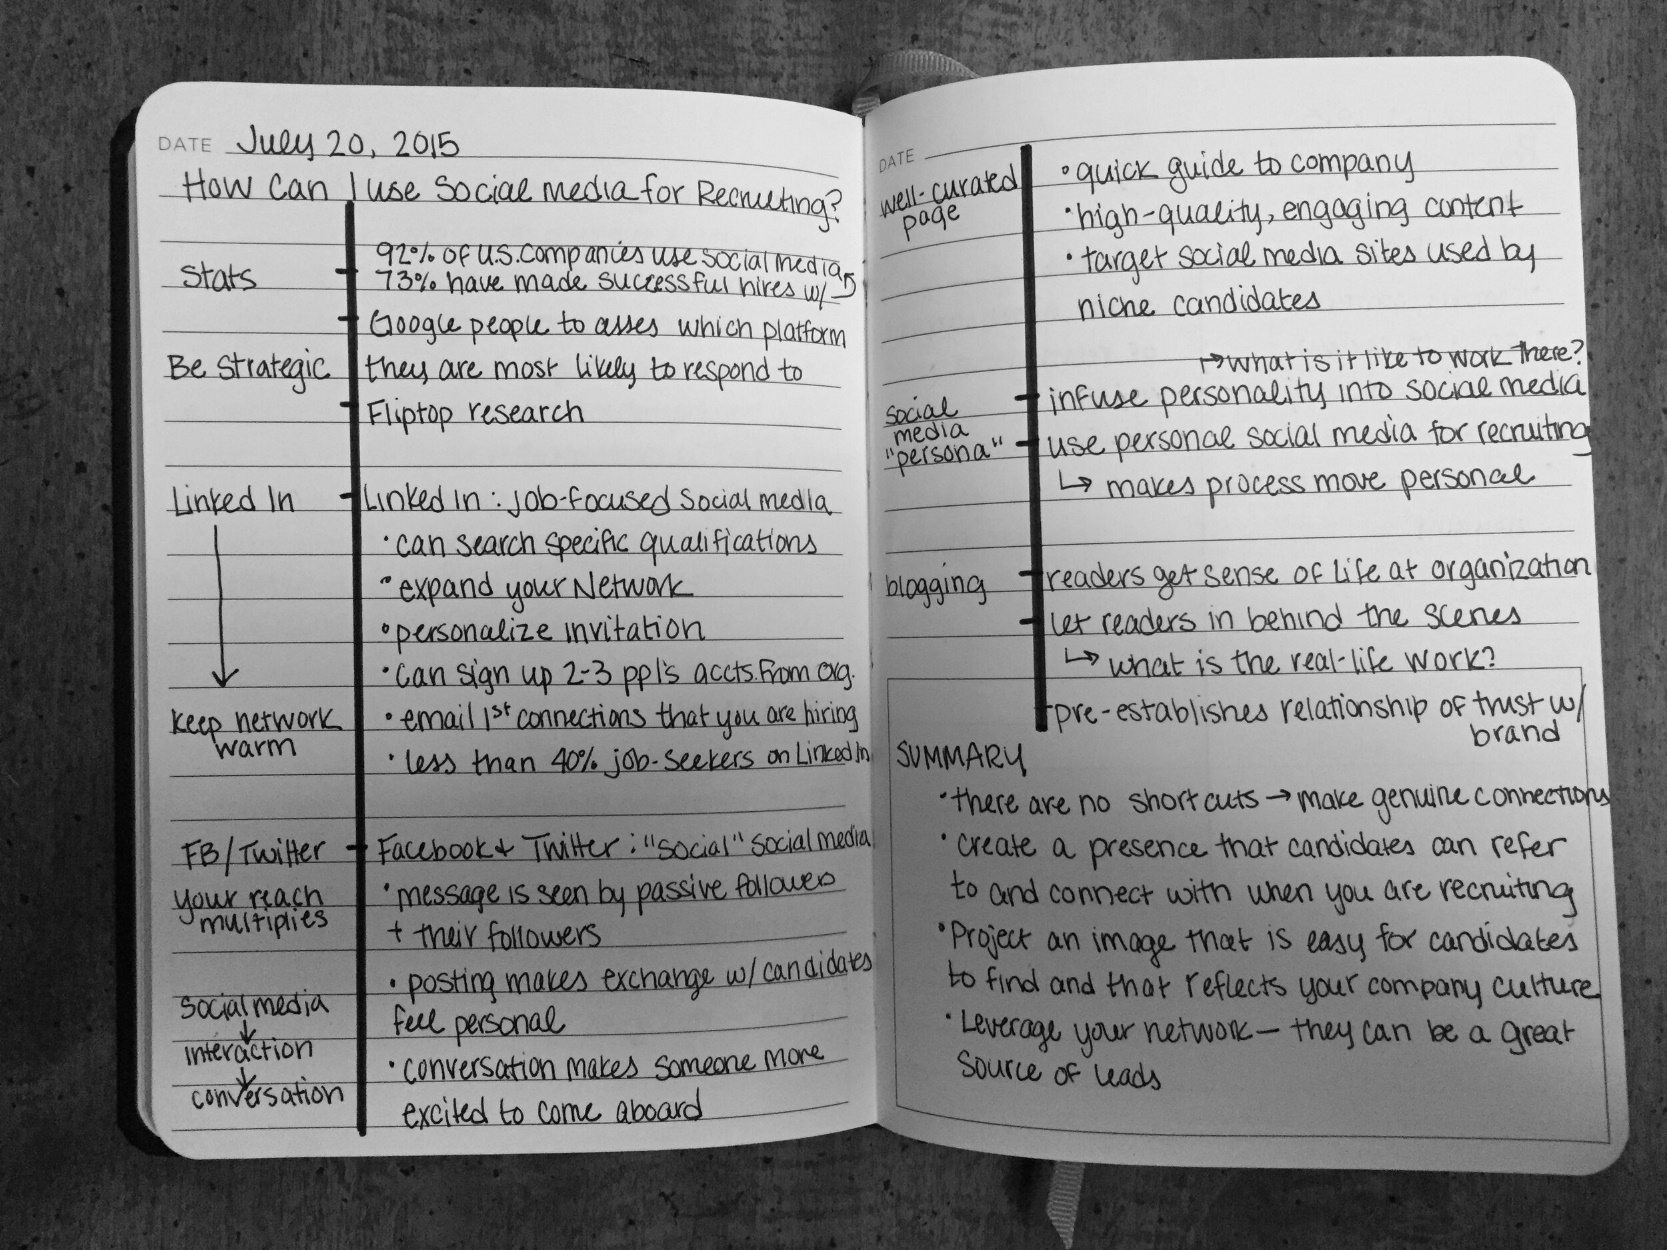 DATE July 20, 2015
How can I use social media for Recruiting?
92% of U.S. companies use social media
Stats
73% have made successful hires w/
Google people to asses which platform
Be Strategic
they are most likely to respond to
Fliptop research
Linked In
Linked In : job-focused social media
• can search specific qualifications
• expand your Network
• personalize invitation
• can sign up 2-3 ppl's accts. from org.
keep network
warm
• email 1st connections that you are hiring
• less than 40% job-seekers on Linked In
FB/Twitter
Facebook + Twitter : "social" social media
your reach
multiplies
• message is seen by passive follower
+ their followers
• posting makes exchange w/ candidates
feel personal
social media
↓
interaction
↓
conversation
• conversation makes someone more
excited to come aboard
DATE
well-curated
page
• quick guide to company
• high-quality, engaging content
• target social media sites used by
niche candidates
↱ what is it like to work there?
social
media
"persona"
infuse personality into social media
use personal social media for recruiting
↳ makes process move personal
blogging
readers get sense of life at organization
let readers in behind the scenes
↳ what is the real-life work?
pre-establishes relationship of trust w/
brand
SUMMARY
• there are no shortcuts → make genuine connections
• create a presence that candidates can refer
to and connect with when you are recruiting
• Project an image that is easy for candidates
to find and that reflects your company culture
• Leverage your network — they can be a great
source of leads